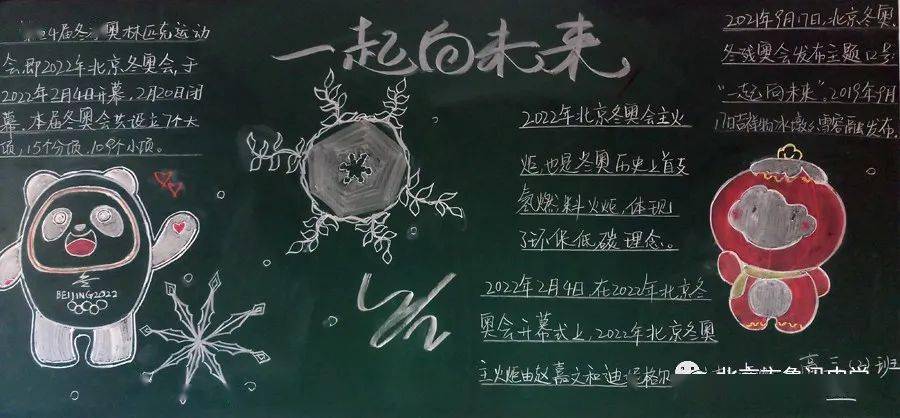 一起向未来
24届冬 奥林匹克运动
会,即2022年北京冬奥会,于
2022年2月4日开幕,2月20日闭
幕。本届冬奥会共设立7个大
项,15个分项,109个小项。
BEIJING2022
2022年北京冬奥会主火
炬,也是冬奥历史上首支
氢燃料火炬,体现
了环保低碳理念。
2022年2月4日,在2022年北京冬
奥会开幕式上,2022年北京冬奥
主火炬由赵嘉文和迪 格尔
2021年9月17日,北京冬奥、
冬残奥会发布主题口号:
“一起向未来”。2019年9月
17日吉祥物冰墩 雪容融发布。
高三(2)班